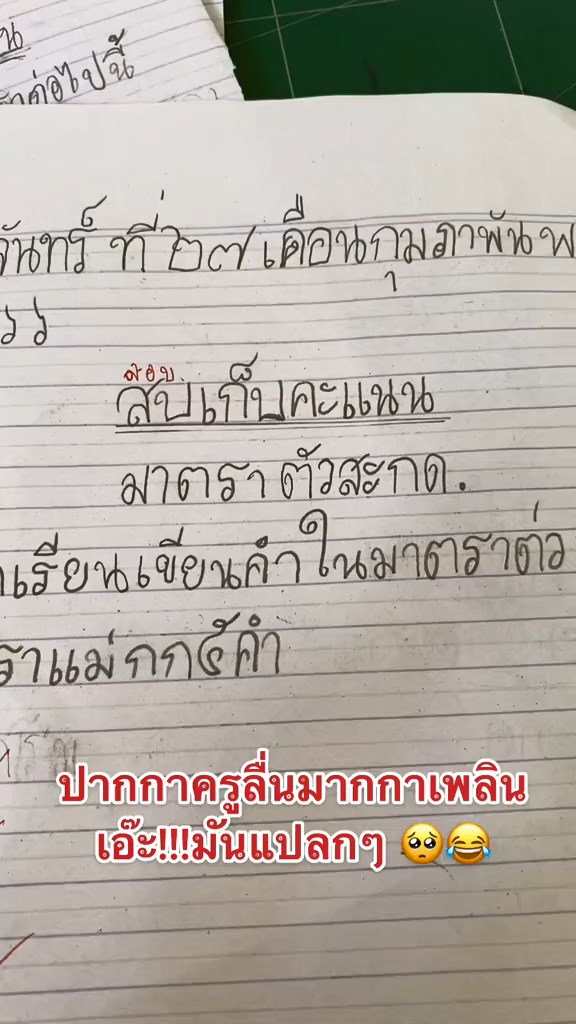 น
ต่อไปนี้
จันทร์ ที่ ๒๗ เดือนกุมภาพันพ
๖๖
สอบ
สบเก็บคะแนน
มาตรา ตัวสะกด.
เรียนเขียนคำ ในมาตราต่ว
ราแม่ กก ๕ คำ
ปากกาครูลื่นมากกาเพลิน
เอ๊ะ!!!มันแปลกๆ 🥺😂